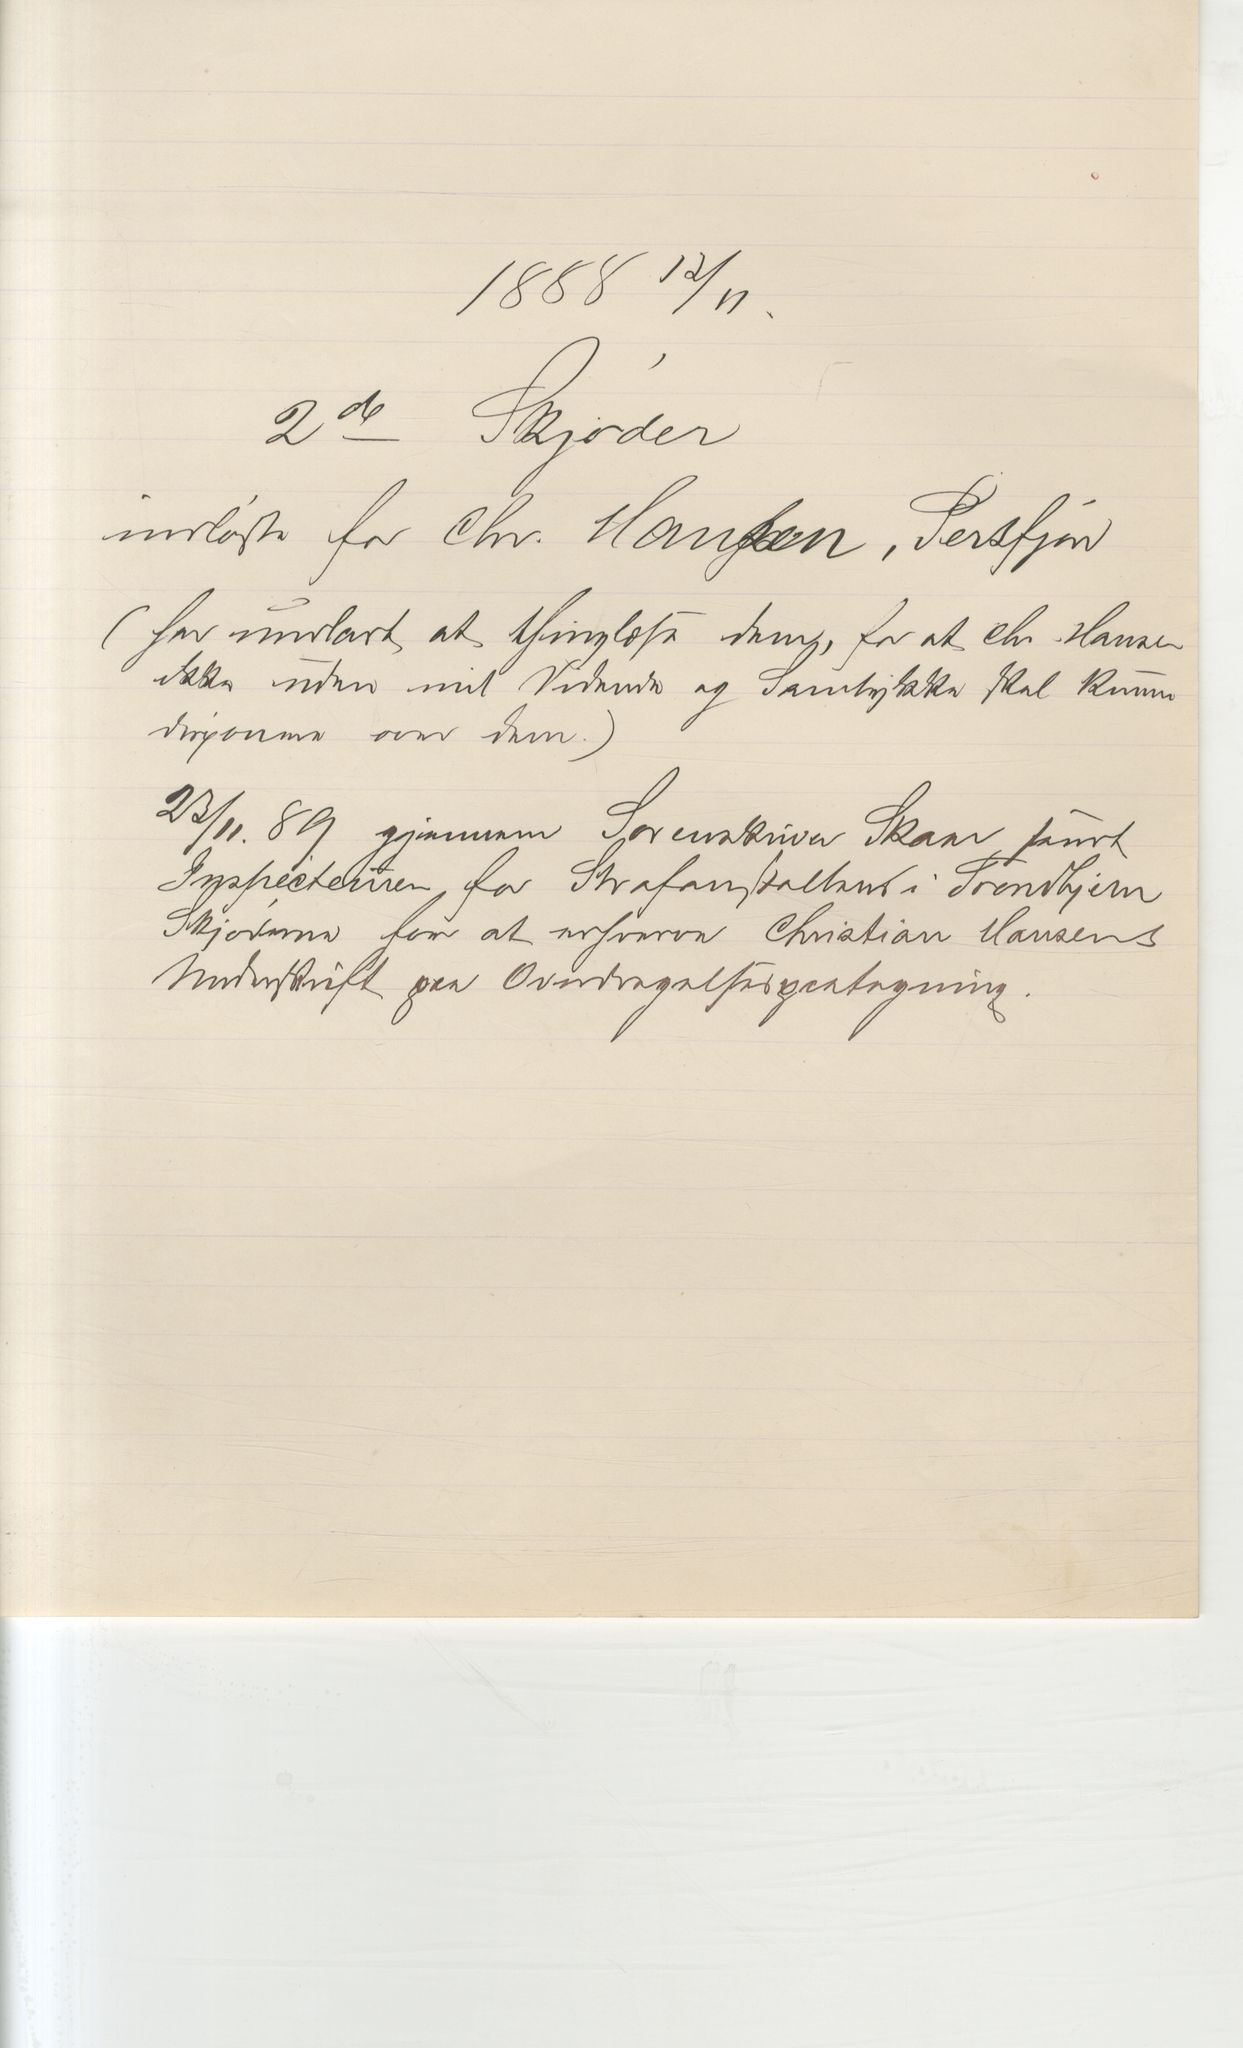 1888 12/11.
2de Skjøder
indløste for Chr. Hansen, Persfjord
(har undladt at thinglæse dem, for at Chr. Hansen
ikke uden mit Vidende og Samtykke skal kunne
disponere over dem.)
23/11. 89 gjennem Sorenskriver Skaar sendt
Inspecteuren for Strafanstalten i Trondhjem
Skjøderne for at erhverve Christian Hansens
Underskrift paa Overdragelsespaategning.